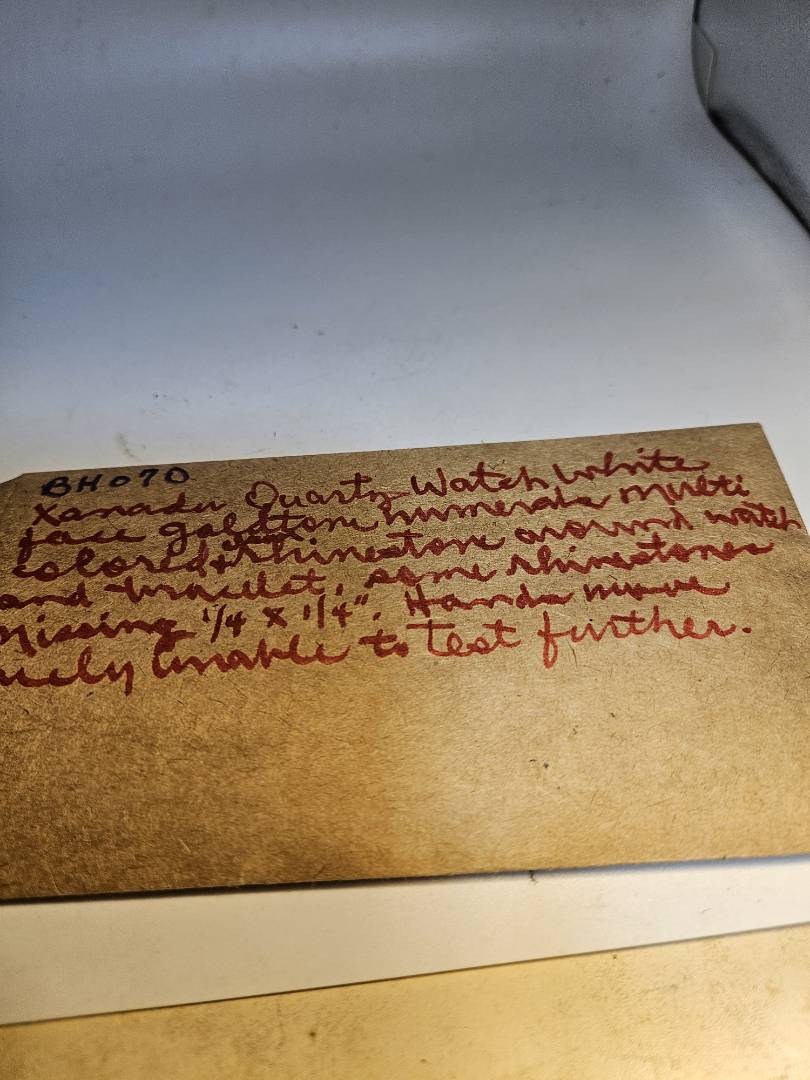 BH070
Xanadu Quartz Watch White
face goldtone numerals multi
colored + rhinestone around watch
and bracelet, some rhinestones
missing 1/4 x 1/4". Hands move
nicely unable to test further.